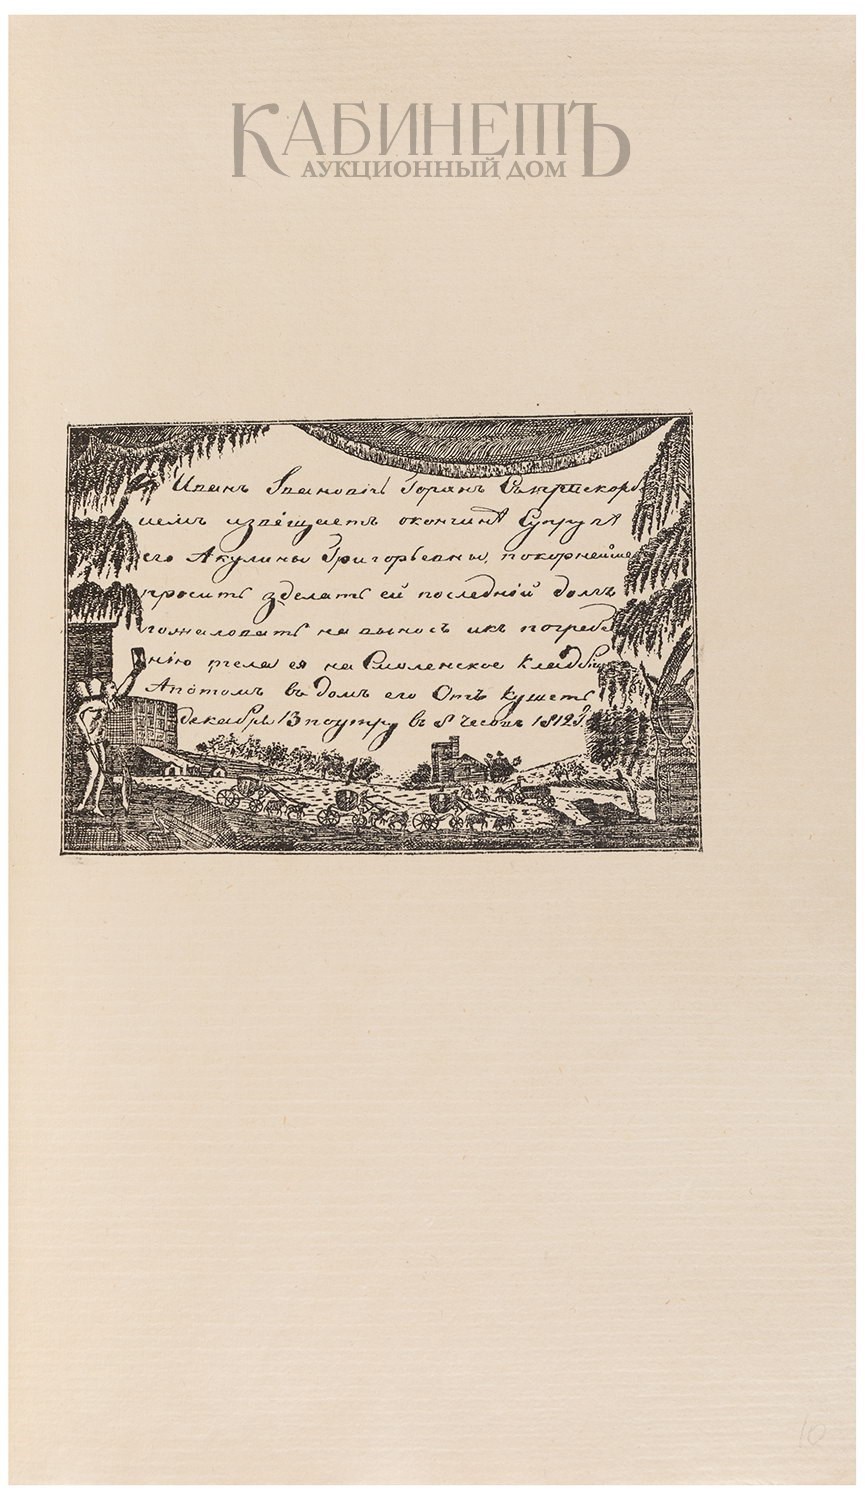 КАБИНЕТЪ
АУКЦИОННЫЙ ДОМ
Иванъ Iвановiчь Горянъ
извѣщаетъ окончинѣ Супруги
его Акулины Григорьевны, покорнейше
просить зделать ей последнiй долгъ
пожаловать на выносъ икъ погребе
нiю тела ея на Смоленское кладби
Апотомъ въ домъ его Отъ кушеть
декабря 13 поутру въ 8 часовъ 1812
10